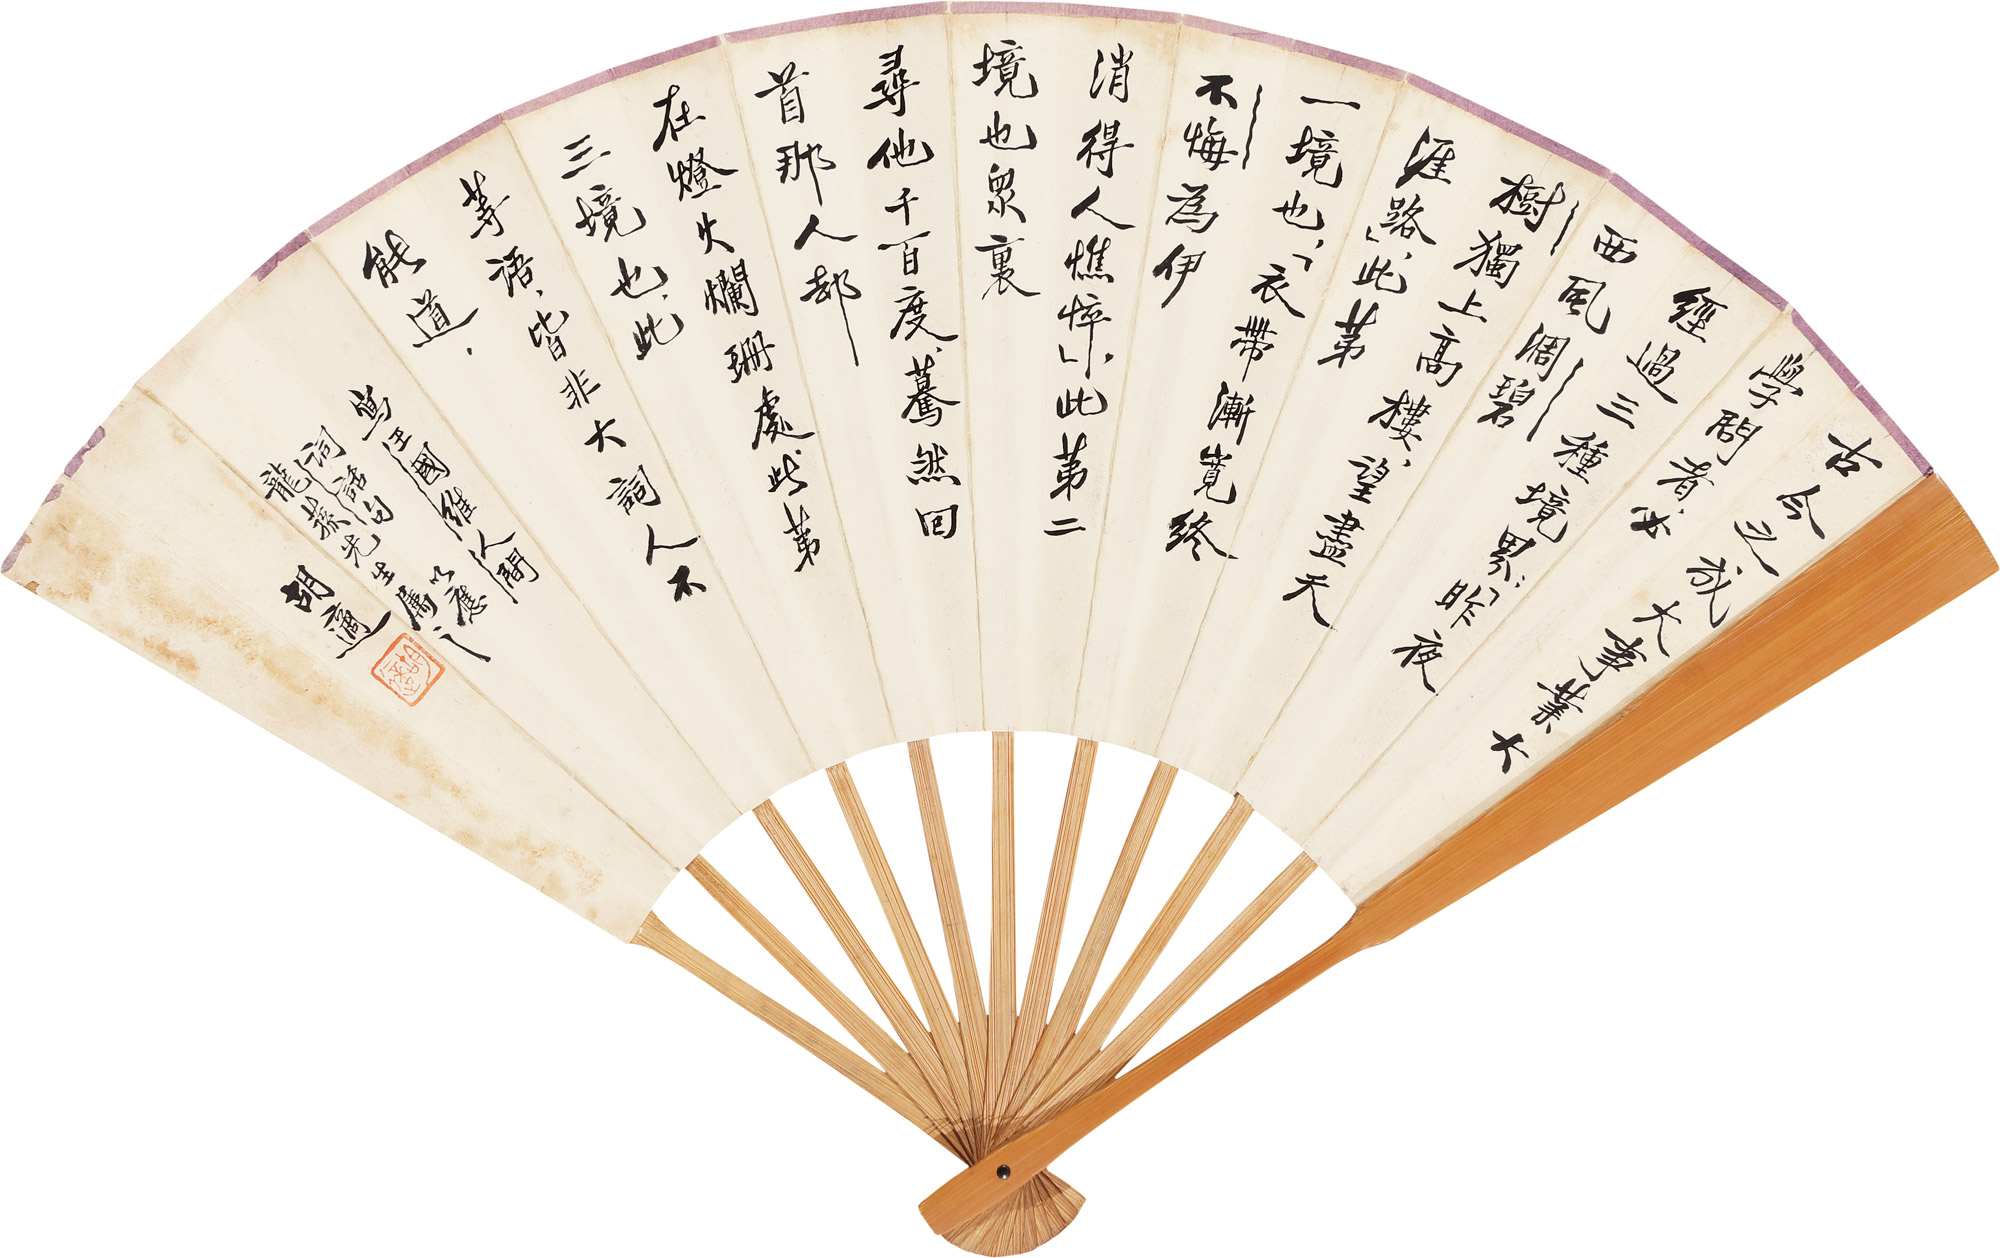 古今之成大事業大
學問者,必
經過三種境界,「昨夜
西風凋碧
樹獨上高樓,望盡天
涯路」,此第
一境也,「衣帶漸寬終
不悔為伊
消得人憔悴」,此第二
境也眾裏
尋他千百度,驀然回
首那人却
在燈火爛珊處,此第
三境也,此
等語,皆非大詞人不
能道.
寫王國維人間
詞話句以應
龍蓀先生屬
胡適